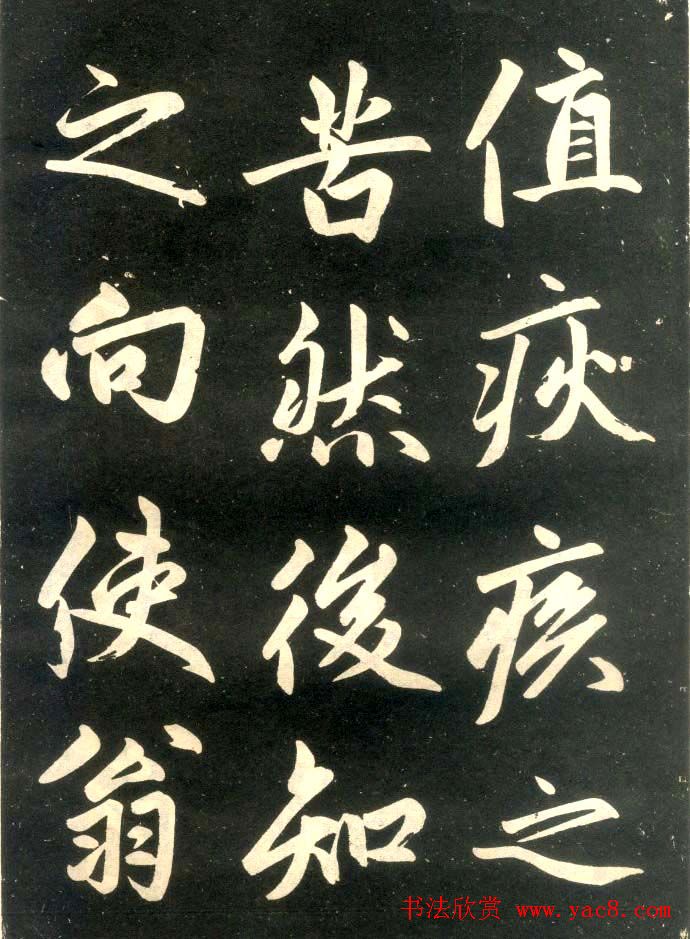 值疢疾之
苦然後知
之向使翁
书法欣赏 www.yac8.com